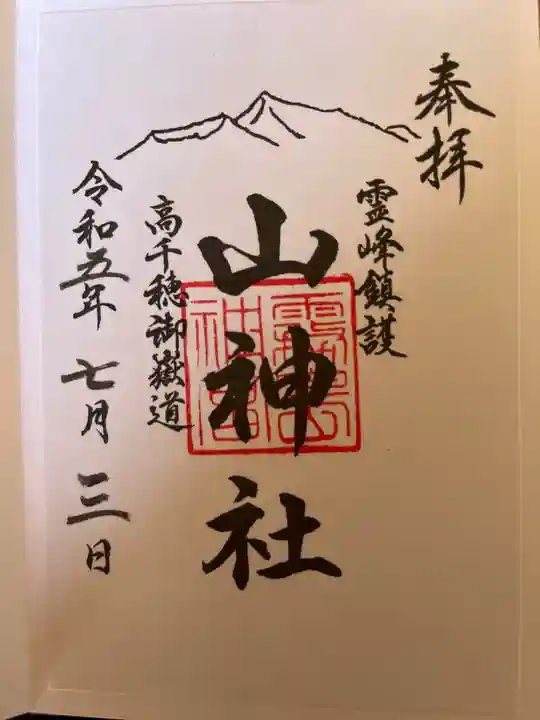 奉拝
霊峰鎮護
山神社
霧島神宮
高千穂御嶽道
令和五年七月三日